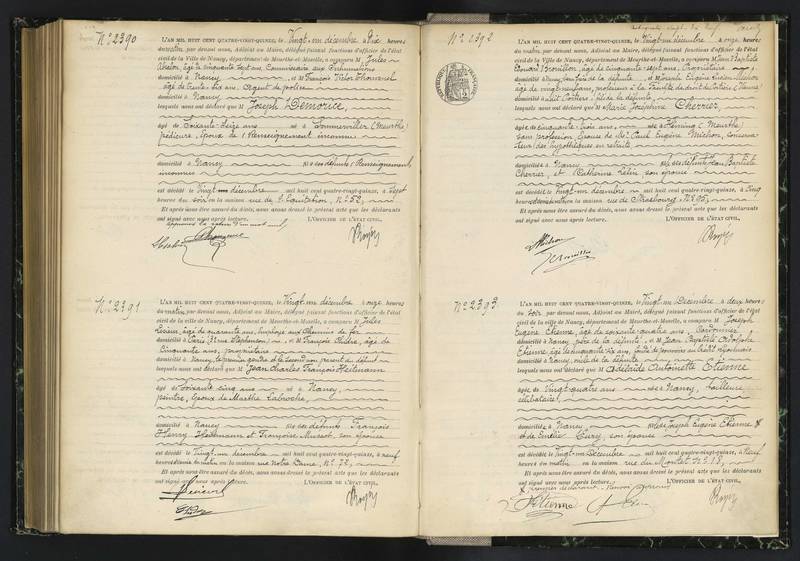 N° 2390
L'AN MIL HUIT CENT QUATRE-VINGT-QUINZE, le Vingt-un décembre à Dix heures
du matin, par devant nous, Adjoint au Maire, délégué faisant fonctions d'officier de l'état
civil de la Ville de Nancy, département de Meurthe-et-Moselle, a comparu M Jules
âgé de cinquante sept ans, Commissaire aux Inhumations
domicilié à Nancy, et M François Victor Thouvenel
âgé de trente six ans, Agent de police
domicilié à Nancy
lesquels nous ont déclaré que M Joseph Demorice
âgé de Soixante-seize ans né à Sommerviller (Meurthe)
pédicure, époux de (Renseignement inconnu)
domicilié à Nancy fils de ses défunts (Renseignement
inconnu)
est décédé le Vingt-un décembre mil huit cent quatre-vingt-quinze, à Sept
heures du soir en la maison rue de l'Equitation, N° 52,
Et après nous être assuré du décès, nous avons dressé le présent acte que les déclarants
ont signé avec nous après lecture. L'OFFICIER DE L'ÉTAT CIVIL,
N° 2391
L'AN MIL HUIT CENT QUATRE-VINGT-QUINZE, le Vingt-un décembre à onze heures
du matin, par devant nous, Adjoint au Maire, délégué faisant fonctions d'officier de l'état
civil de la ville de Nancy, département de Meurthe-et-Moselle, a comparu M Jules
âgé de quarante ans, employé aux Chemins de fer
domicilié à Paris, et M François
cinquante ans, propriétaire
domicilié à Nancy, le premier gendre et le second non parent du défunt
lesquels nous ont déclaré que M Jean Charles François Heitzmann
âgé de soixante cinq ans né à Nancy,
peintre, époux de Marthe Labroche,
domicilié à Nancy fils de ses défunts François
Henry Heitzmann et Françoise son épouse
est décédé le Vingt-un décembre mil huit cent quatre-vingt-quinze, à neuf
heures du matin en la maison rue Notre Dame, N° 72,
Et après nous être assuré du décès, nous avons dressé le présent acte que les déclarants
ont signé avec nous après lecture. L'OFFICIER DE L'ÉTAT CIVIL,
N° 2392
L'AN MIL HUIT CENT QUATRE-VINGT-QUINZE, le Vingt-un décembre à onze heures
du matin, par devant nous, Adjoint au Maire, délégué faisant fonctions d'officier de l'état
civil de la ville de Nancy, département de Meurthe-et-Moselle, a comparu M Jean Baptiste
âgé de cinquante sept ans
domicilié à Nancy de la défunte, et M Eugène Lucien Michon
âgé de vingt neuf ans, professeur à la Faculté de droit de Poitiers (Vienne)
domicilié à Poitiers, fils de la défunte
lesquels nous ont déclaré que M Marie Joséphine Cherrier,
âgée de cinquante trois ans, née à Héming (Meurthe)
sans profession, épouse de Mr Paul Eugène Michon, conserva
teur des hypothèques en retraite
domiciliée à Nancy fille de ses défunts Jean Baptiste
Cherrier, et Catherine son épouse
est décédée le Vingt-un décembre mil huit cent quatre-vingt-quinze, à Cinq
heures du matin en la maison rue de Strasbourg N° 95,
Et après nous être assuré du décès, nous avons dressé le présent acte que les déclarants
ont signé avec nous après lecture. L'OFFICIER DE L'ÉTAT CIVIL,
Michon
N° 2393
L'AN MIL HUIT CENT QUATRE-VINGT-QUINZE, le Vingt-un Décembre à deux heures
du soir par devant nous, Adjoint au Maire, délégué faisant fonctions d'officier de l'état
civil de la ville de Nancy, département de Meurthe-et-Moselle, a comparu M Joseph
Eugène Etienne, âgé de soixante quatre ans, Cordonnier
domicilié à Nancy père de la défunte, et M Jean Baptiste Adolphe
Etienne, âgé de quarante six ans, garçon de bureau au Crédit Lyonnais
domicilié à Nancy, de la défunte
lesquels nous ont déclaré que M Adélaïde Antoinette Etienne
âgée de Vingt quatre ans née à Nancy, tailleuse
célibataire,
domiciliée à Nancy, fille de Joseph Eugène Etienne &
et de Emélie Cury, son épouse
est décédée le vingt-un Décembre mil huit cent quatre-vingt-quinze, à Neuf
heures du matin en la maison rue du Montet N° 18,
Et après nous être assuré du décès, nous avons dressé le présent acte que les déclarants
ont signé avec nous après lecture. L'OFFICIER DE L'ÉTAT CIVIL,
Etienne